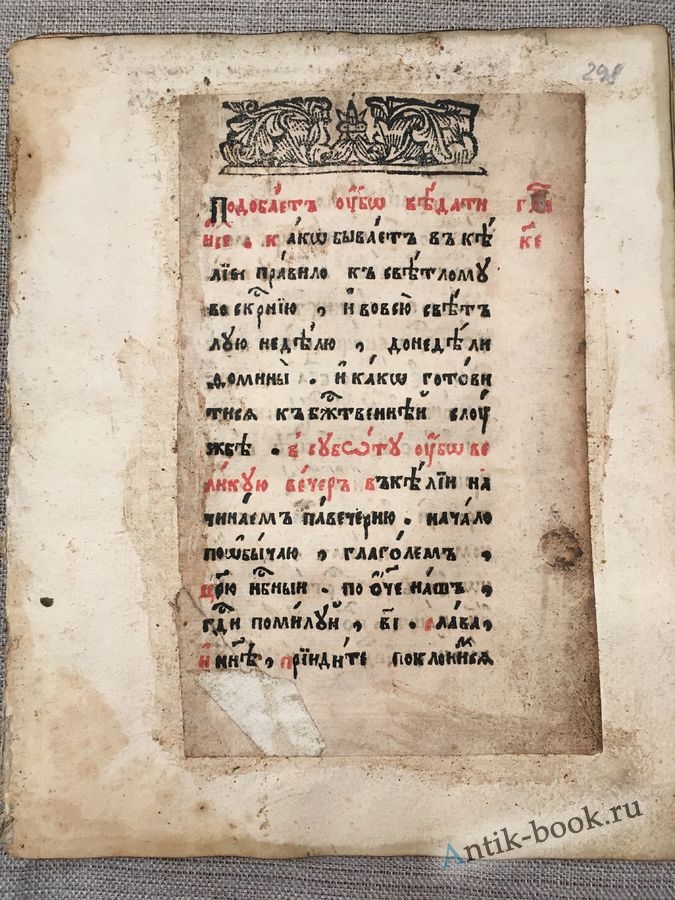 298
Подоба́етъ ᲂу҆́бѡ вѣ́дати
како̀ быва́етъ в ке́
лїи пра́вило къ свѣ́тломꙋ
воскрⷭ҇нїю , и҆ вовсю̀ свѣ́тъ
лꙋю недѣ́лю , донедѣ́ли
ѳомины̀ . и҆ ка́кѡ гото́ви
тисѧ къ бж҃твеннѣ́й слꙋ́
жбѣ . в сꙋббѡ́тꙋ ᲂу҆́бѡ ве
ли́кꙋю ве́черъ въке́лїи на
чина́емъ паве́чернию . нача́ло
поѡбы́чаю , глаго́лемъ ,
цр҃ю нбⷭ҇ныи . по ѻ҆́ч҃е на́шъ ,
гдⷭ҇и поми́лꙋй , в҃і . сла́ва ,
и҆ ны́нѣ , прїиди́те поклони́мсѧ
Antik-book.ru